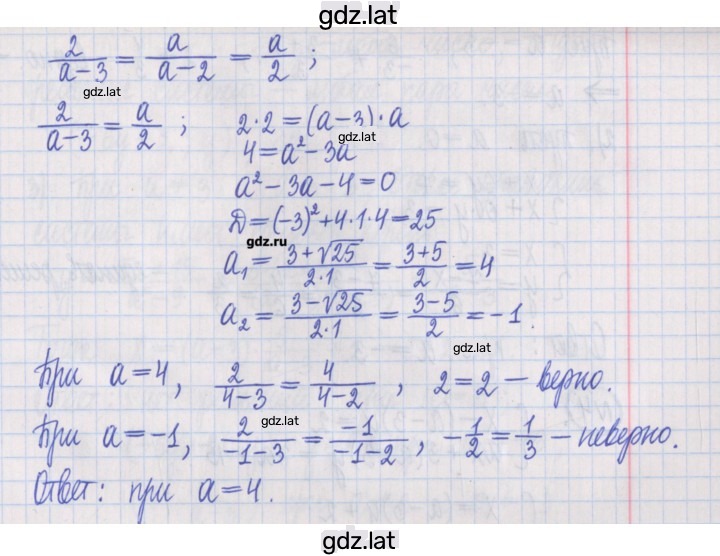 gdz.lat
2/(a-3) = a/(a-2) = a/2 ;
gdz.lat
2/(a-3) = a/2 ; 2·2=(a-3)·a
gdz.lat
4=a²-3a
a²-3a-4=0
D=(-3)²+4·1·4=25
gdz.ru
a₁ = (3+√25)/(2·1) = (3+5)/2 = 4
a₂ = (3-√25)/(2·1) = (3-5)/2 = -1.
gdz.lat
При a=4, 2/(4-3) = 4/(4-2) , 2=2 – верно.
gdz.lat
При a=-1, 2/(-1-3) = -1/(-1-2) , -1/2 = 1/3 – неверно.
Ответ: при a=4.
gdz.lat